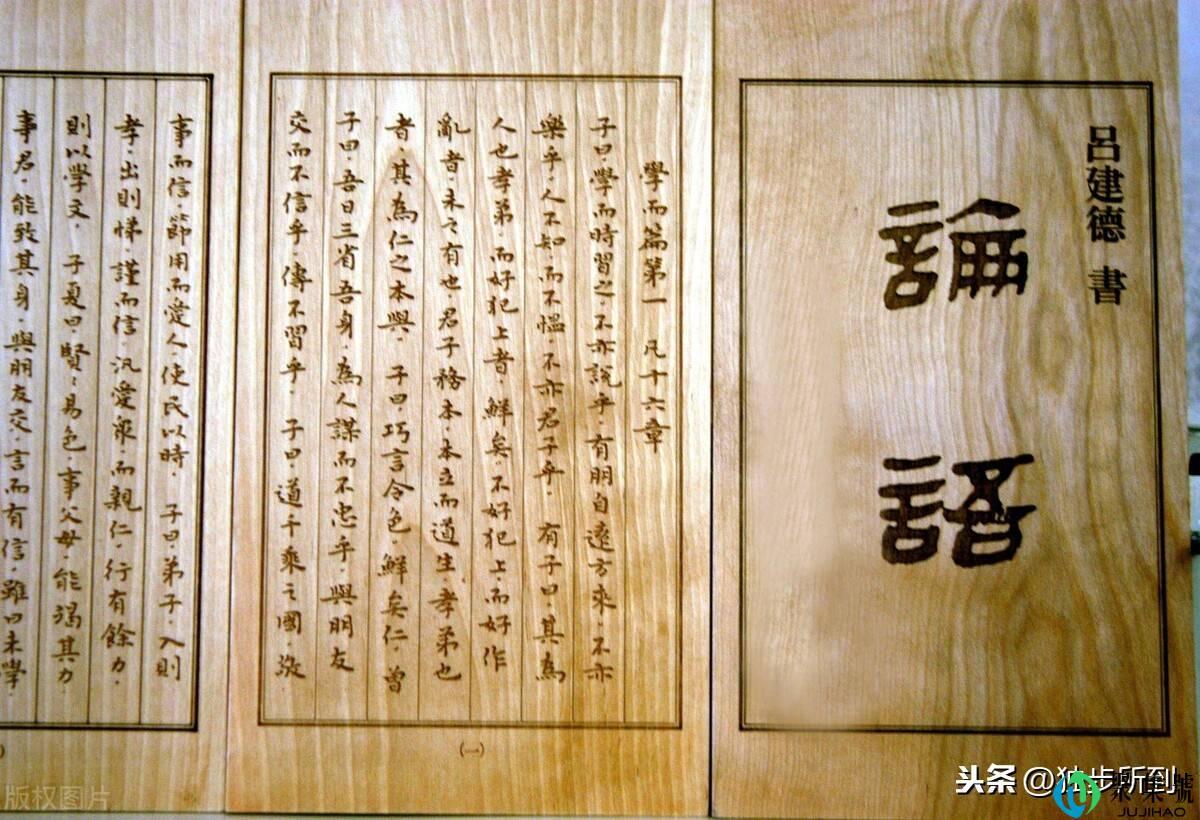 呂建德 書
論語
學而篇第一 凡十六章
子曰.學而時習之.不亦說乎.有朋自遠方來.不亦
樂乎.人不知.而不慍.不亦君子乎. 有子曰.其為
人也孝弟.而好犯上者.鮮矣.不好犯上.而好作
亂者.未之有也.君子務本.本立而道生.孝弟也
者.其為仁之本與. 子曰.巧言令色.鮮矣仁.曾
子曰.吾日三省吾身.為人謀而不忠乎.與朋友
交而不信乎.傳不習乎. 子曰.道千乘之國.敬
(一)
事而信.節用而愛人.使民以時. 子曰.弟子.入則
孝.出則悌.謹而信.汎愛眾.而親仁.行有餘力.
則以學文. 子夏曰.賢〻易色.事父母.能竭其力.
事君.能致其身.與朋友交.言而有信.雖曰未學
版权图片
头条 @独步所到
聚集號
JUJIHAO